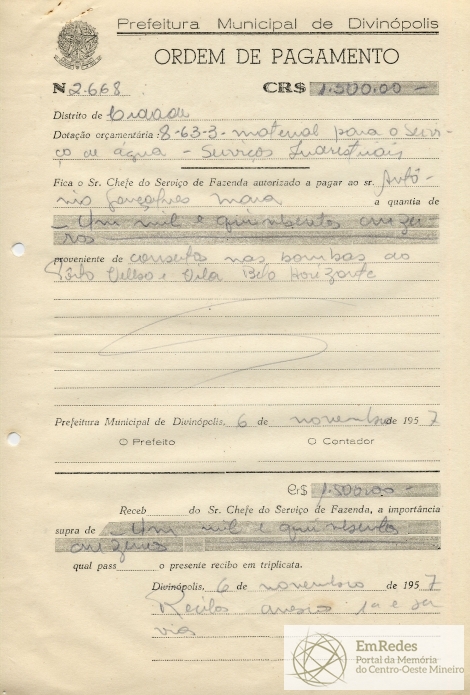 Prefeitura Municipal de Divinópolis
ORDEM DE PAGAMENTO
Nº 2.668 CR$ 1.500,00 -
Distrito de Cidade
Dotação orçamentária: 8-63-3 - material para o Servi-
ço de água - Serviços Industriais
Fica o Sr. Chefe do Serviço de Fazenda autorizado a pagar ao sr. Antô-
nio Gonçalves a quantia de
- Um mil e quinhentos cruzei-
ros
proveniente de conserto nas bombas do
Pôrto Velho e Vila Belo Horizonte
Prefeitura Municipal de Divinópolis, 6 de novembro de 1957
O Prefeito O Contador
Cr$ 1.500,00 -
Receb do Sr. Chefe do Serviço de Fazenda, a importância
supra de - Um mil e quinhentos
cruzeiros
qual pass o presente recibo em triplicata.
Divinópolis, 6 de novembro de 1957
Recibo anexo
EmRedes
Portal da Memória
do Centro-Oeste Mineiro